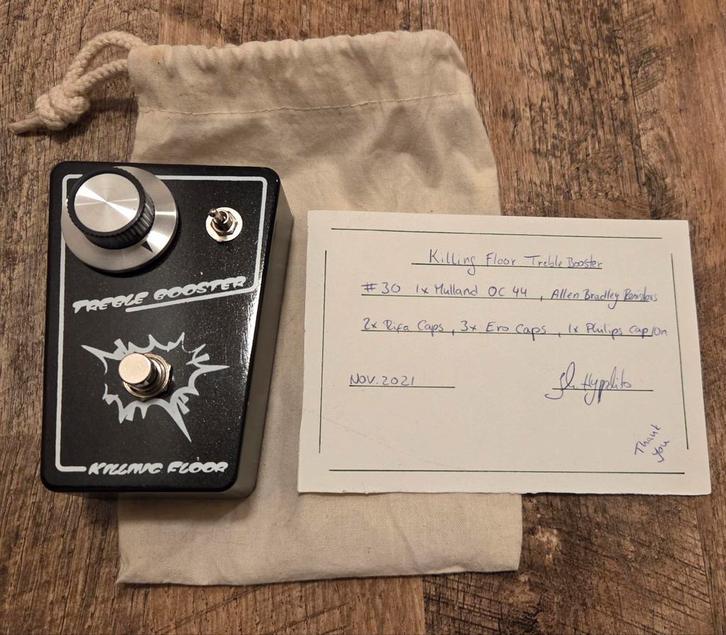 TREBLE BOOSTER
KILLING FLOOR
Killing Floor Treble Booster
#30 1x Mullard OC 44, Allen Bradley Resistors
2x Rifa Caps, 3x Ero Caps, 1x Philips cap/on
NOV. 2021
Hypplito
Thank
you